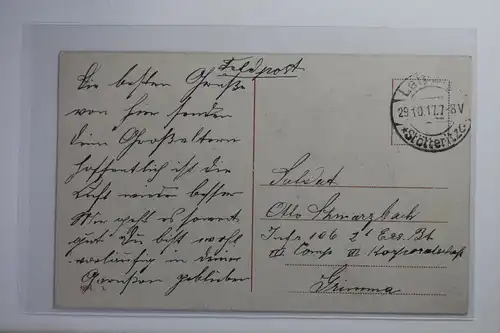 Feldpost
Die besten Grüße
von hier senden
dein Großeltern
hoffentlich ist die
Luft wieder besser
Mir geht es soweit
gut Du bist wohl
vorläufig in deiner
Garnison geblieben
Leipzig
29.10.17.7-8V
*Stötteritz
Soldat
Otto Schwarzbach
Inftr 106 2t Ers. Bt
III. Comp VI Korporalschaft
Grimma